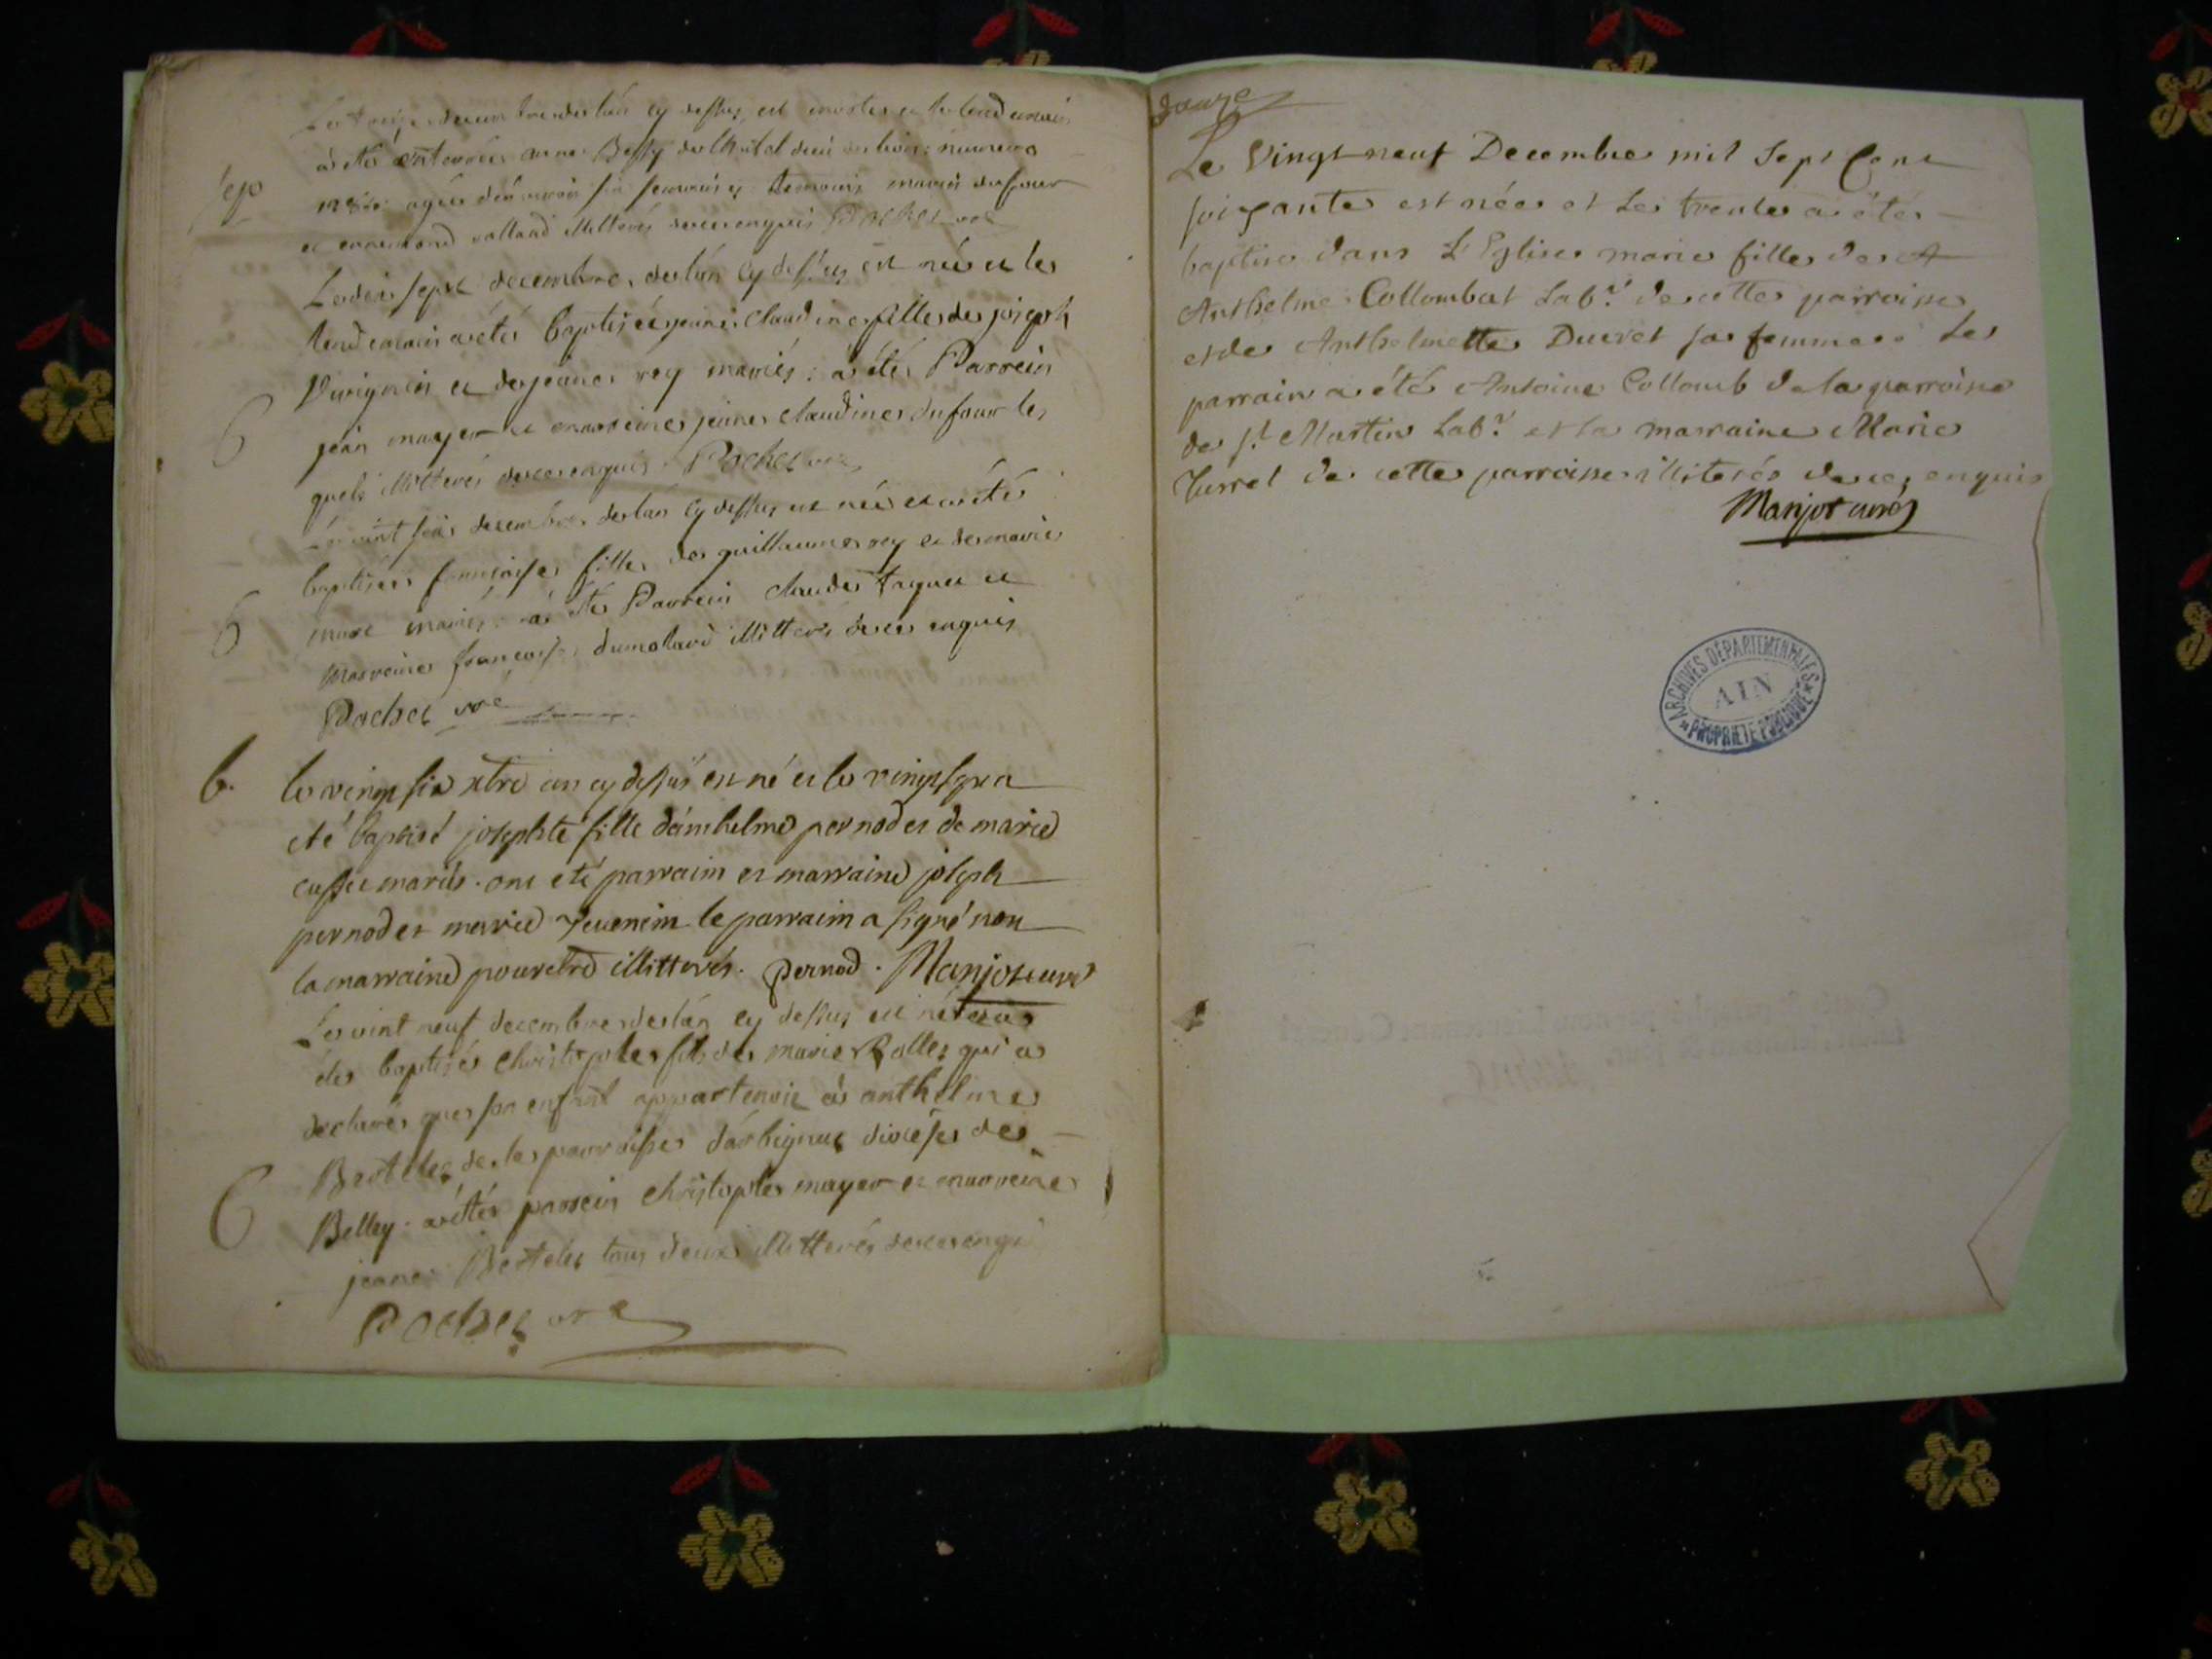 Le treize decembre de lán cy dessus est morte et le lendemain
à été enterrée anne Bessy de lhotel dieu de lion: numero
sep
agée dén viron six semaines temoins marin dufour
et ennemond vallaud illitterés de ce enquis Pochet vre
Le dix sept decembre de lán cy dessus est née et le
lendemain a été baptisée jeanne claudine fille de joseph
Vurignin et de jeanne rey mariés: a été Parrein
6
jean mayer et marreine jeanne claudine dufour les
quels illitterés de ce enquis Pochet vre
Le vint six decembre de lán cy dessus est née et a été
baptisée françoise fille de guillaume rey et de marie
6
mariés: a été Parrein claude taquet et
Marreine françoise dumolard illitterés de ce enquis
Pochet vre
b. le vingt six xbre an cy dessus est né et le vingt sept a
eté baptisé josephte fille dámthelme pernod et de marie
mariés. ont eté parraim et marraine joseph
pernod et marie Jeuenim le parraim a signé non
la marraine pour etre illitterés. pernod. Manjot curé
Le vint neuf decembre de lán cy dessus est né et a
été baptisé christople fils de marie Rollet qui a
declaré que son enfant appartenoit à anthelme
Brottelet de la parroisse dárbignieu diocése de
6
Belley. a été parrein christople mayer et marreine
jeanne tous deux illitterés de ce enqui
Pochet vre
douze
Le Vingt neuf Decembre mil Sept Cent
soixante est née et Le trente a été
baptise dans L'Eglise marie fille de A
Anthelme Collombat Labr de cette parroisse
et de Anthelmette Ducret sa femme. Le
parrain a été Antoine Collomb de la parroisse
de st Martin Labr et la marraine Marie
Turrel de cette parroisse illiterés de ce enquis
Manjot curé
ARCHIVES DEPARTEMENTALES
AIN
PROPRIETE PUBLIQUE